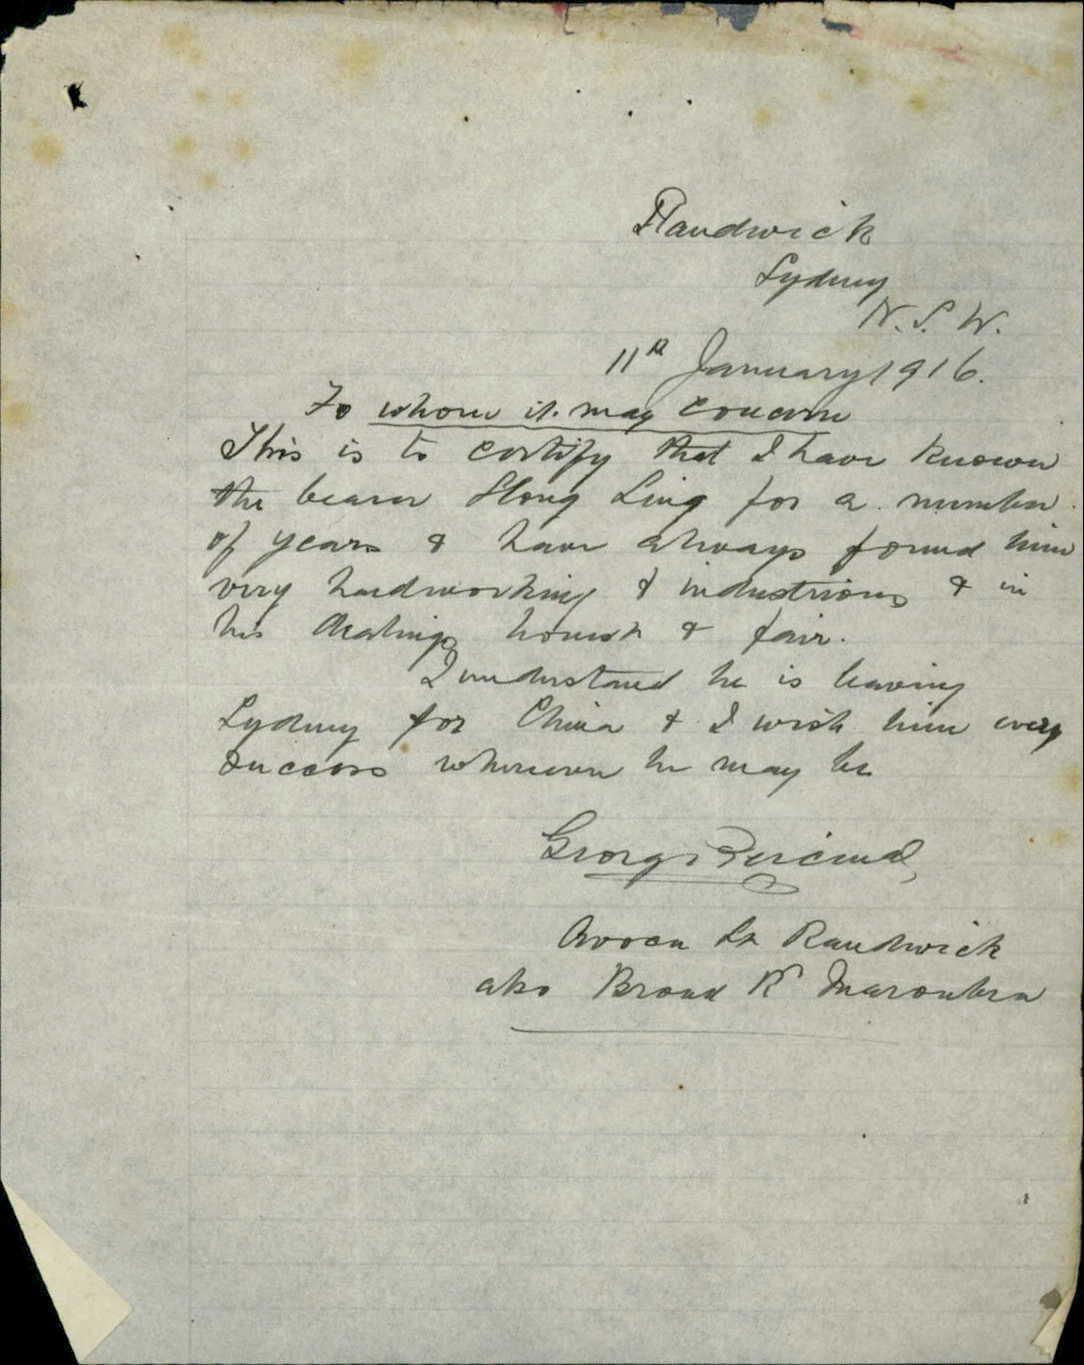 Randwick
Sydney
N.S.W.
11th January 1916.
To whom it may concern
This is to certify that I have known
the bearer Hong Ling for a number
of years & have always found him
very hardworking & industrious & in
his dealings honest & fair.
I understand he is leaving
Sydney for China & I wish him every
success wherever he may be
George Percival,
Avoca St Randwick
also Broad Rd Maroubra